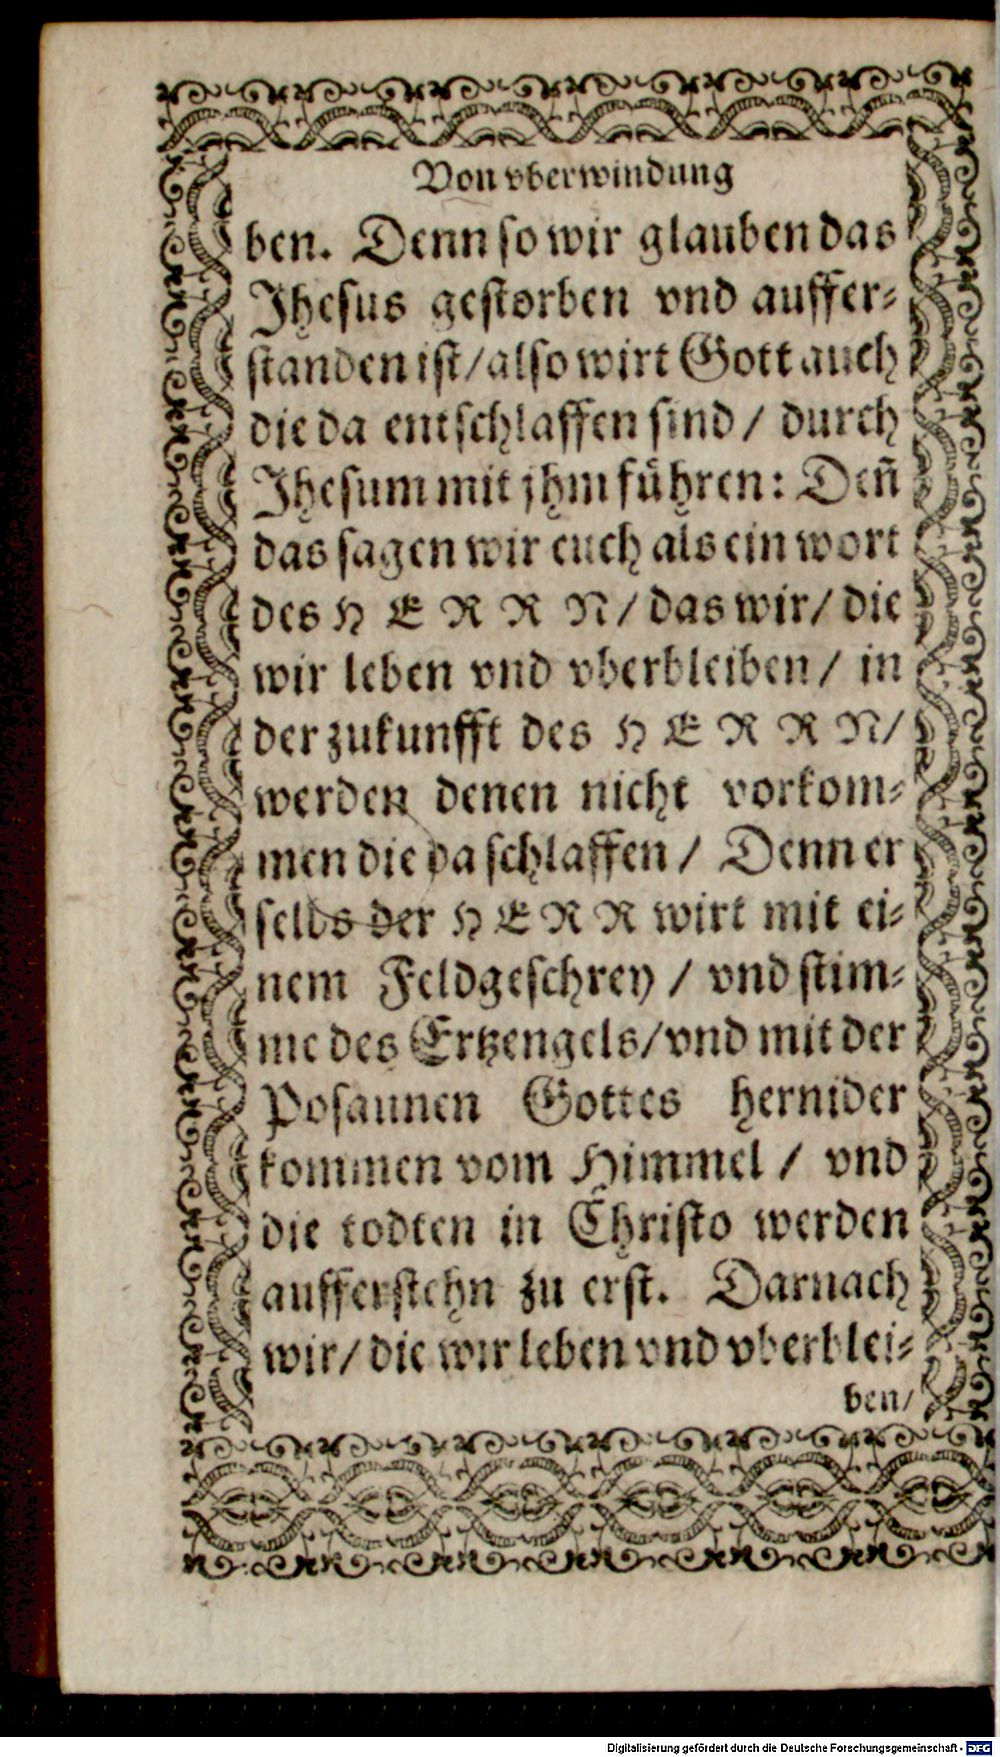 Von vberwindung
ben. Denn so wir glauben das
Jhesus gestorben vnd auffer-
standen ist/also wirt Gott auch
die da entschlaffen sind/ durch
Jhesum mit jhm führen: Deñ
das sagen wir euch als ein wort
des HERRN/ das wir/ die
wir leben vnd vberbleiben/ in
der zukunfft des HERRN/
werden denen nicht vorkom-
men die da schlaffen/ Denn er
selbs der HERR wirt mit ei-
nem Feldgeschrey/ vnd stim-
me des Ertzengels/vnd mit der
Posaunen Gottes hernider
kommen vom Himmel/ vnd
die todten in Christo werden
aufferstehn zu erst. Darnach
wir/ die wir leben vnd vberblei-
ben/
Digitalisierung gefördert durch die Deutsche Forschungsgemeinschaft - DFG